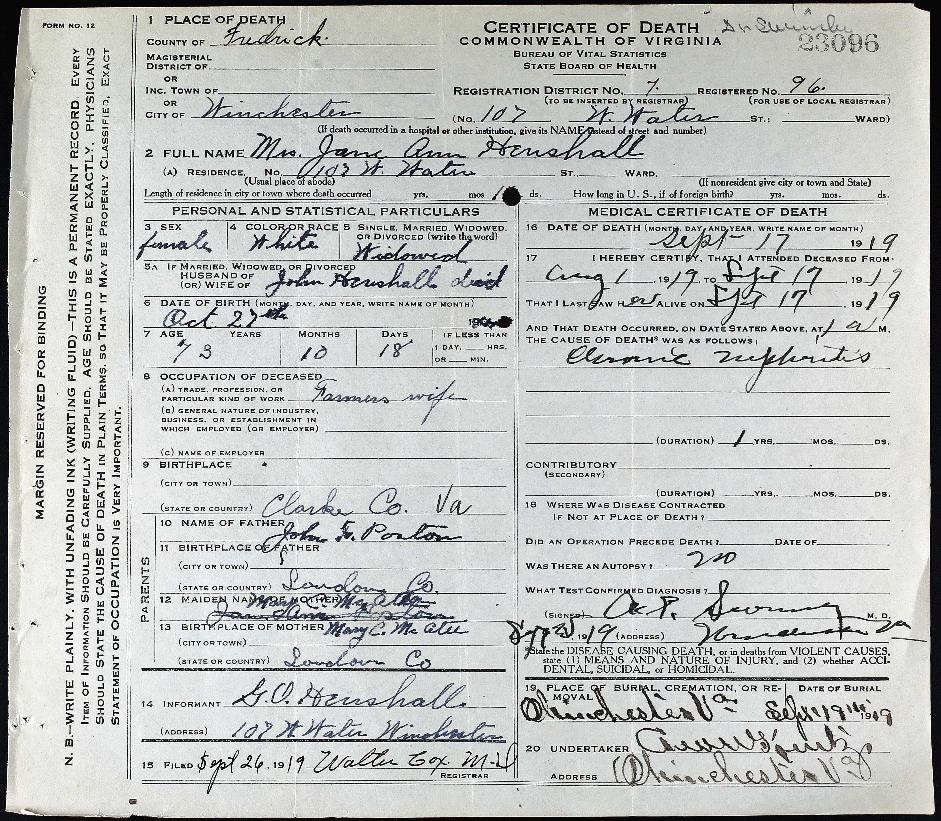 FORM NO. 12
MARGIN RESERVED FOR BINDING
N. B.—WRITE PLAINLY, WITH UNFADING INK (WRITING FLUID)—THIS IS A PERMANENT RECORD. EVERY
ITEM OF INFORMATION SHOULD BE CAREFULLY SUPPLIED. AGE SHOULD BE STATED EXACTLY. PHYSICIANS
SHOULD STATE THE CAUSE OF DEATH IN PLAIN TERMS, SO THAT IT MAY BE PROPERLY CLASSIFIED. EXACT
STATEMENT OF OCCUPATION IS VERY IMPORTANT.
CERTIFICATE OF DEATH
COMMONWEALTH OF VIRGINIA
BUREAU OF VITAL STATISTICS
STATE BOARD OF HEALTH
23096
1 PLACE OF DEATH
COUNTY OF Fredrick
MAGISTERIAL
DISTRICT OF
OR
INC. TOWN OF
OR
CITY OF Winchester
REGISTRATION DISTRICT NO. 7. REGISTERED NO. 96.
(TO BE INSERTED BY REGISTRAR) (FOR USE OF LOCAL REGISTRAR)
(NO. 107 W. Water ST.; WARD)
(If death occurred in a hospital or other institution, give its NAME instead of street and number)
2 FULL NAME Mrs. Jane Ann Henshall
(A) RESIDENCE, NO. 107 W. Water ST. WARD.
(Usual place of abode) (If nonresident give city or town and State)
Length of residence in city or town where death occurred yrs. mos. ds. How long in U. S., if of foreign birth? yrs. mos. ds.
PERSONAL AND STATISTICAL PARTICULARS
3 SEX
female
4 COLOR OR RACE
White
5 SINGLE, MARRIED, WIDOWED,
OR DIVORCED (write the word)
Widowed
5A IF MARRIED, WIDOWED, OR DIVORCED
HUSBAND OF
(OR) WIFE OF John Henshall died
6 DATE OF BIRTH (MONTH, DAY, AND YEAR, WRITE NAME OF MONTH)
Oct 27th
7 AGE YEARS MONTHS DAYS
73 10 18
IF LESS THAN
1 DAY, HRS.
OR MIN.
8 OCCUPATION OF DECEASED
(A) TRADE, PROFESSION, OR
PARTICULAR KIND OF WORK Farmers wife
(B) GENERAL NATURE OF INDUSTRY,
BUSINESS, OR ESTABLISHMENT IN
WHICH EMPLOYED (OR EMPLOYER)
(C) NAME OF EMPLOYER
9 BIRTHPLACE
(CITY OR TOWN)
(STATE OR COUNTRY) Clarke Co. Va
PARENTS
10 NAME OF FATHER
John F. Poston
11 BIRTHPLACE OF FATHER
(CITY OR TOWN)
(STATE OR COUNTRY) Loudoun Co.
12 MAIDEN NAME OF MOTHER
Mary C. McAtee
13 BIRTHPLACE OF MOTHER Mary C. McAtee
(CITY OR TOWN)
(STATE OR COUNTRY) Loudoun Co
14 INFORMANT G.O. Henshall
(ADDRESS) 107 W Water Winchester
15 FILED Sept 26, 1919 Walter Cox M.D
REGISTRAR
MEDICAL CERTIFICATE OF DEATH
16 DATE OF DEATH (MONTH, DAY, AND YEAR, WRITE NAME OF MONTH)
Sept 17 1919
17 I HEREBY CERTIFY, THAT I ATTENDED DECEASED FROM
Aug 1, 1919, TO Sept 17, 1919
THAT I LAST SAW her ALIVE ON Sept 17, 1919
AND THAT DEATH OCCURRED, ON DATE STATED ABOVE, AT 1 a M.
THE CAUSE OF DEATH* WAS AS FOLLOWS:
Chronic nephritis
(DURATION) 1 YRS. MOS. DS.
CONTRIBUTORY
(SECONDARY)
(DURATION) YRS. MOS. DS.
18 WHERE WAS DISEASE CONTRACTED
IF NOT AT PLACE OF DEATH?
DID AN OPERATION PRECEDE DEATH? DATE OF
WAS THERE AN AUTOPSY? no
WHAT TEST CONFIRMED DIAGNOSIS?
(SIGNED) M. D.
1919 (ADDRESS) Winchester Va
*State the DISEASE CAUSING DEATH, or in deaths from VIOLENT CAUSES,
state (1) MEANS AND NATURE OF INJURY, and (2) whether ACCI-
DENTAL, SUICIDAL, or HOMICIDAL.
19 PLACE OF BURIAL, CREMATION, OR RE-
MOVAL DATE OF BURIAL
Winchester Va Sept 19th 1919
20 UNDERTAKER
ADDRESS Winchester Va